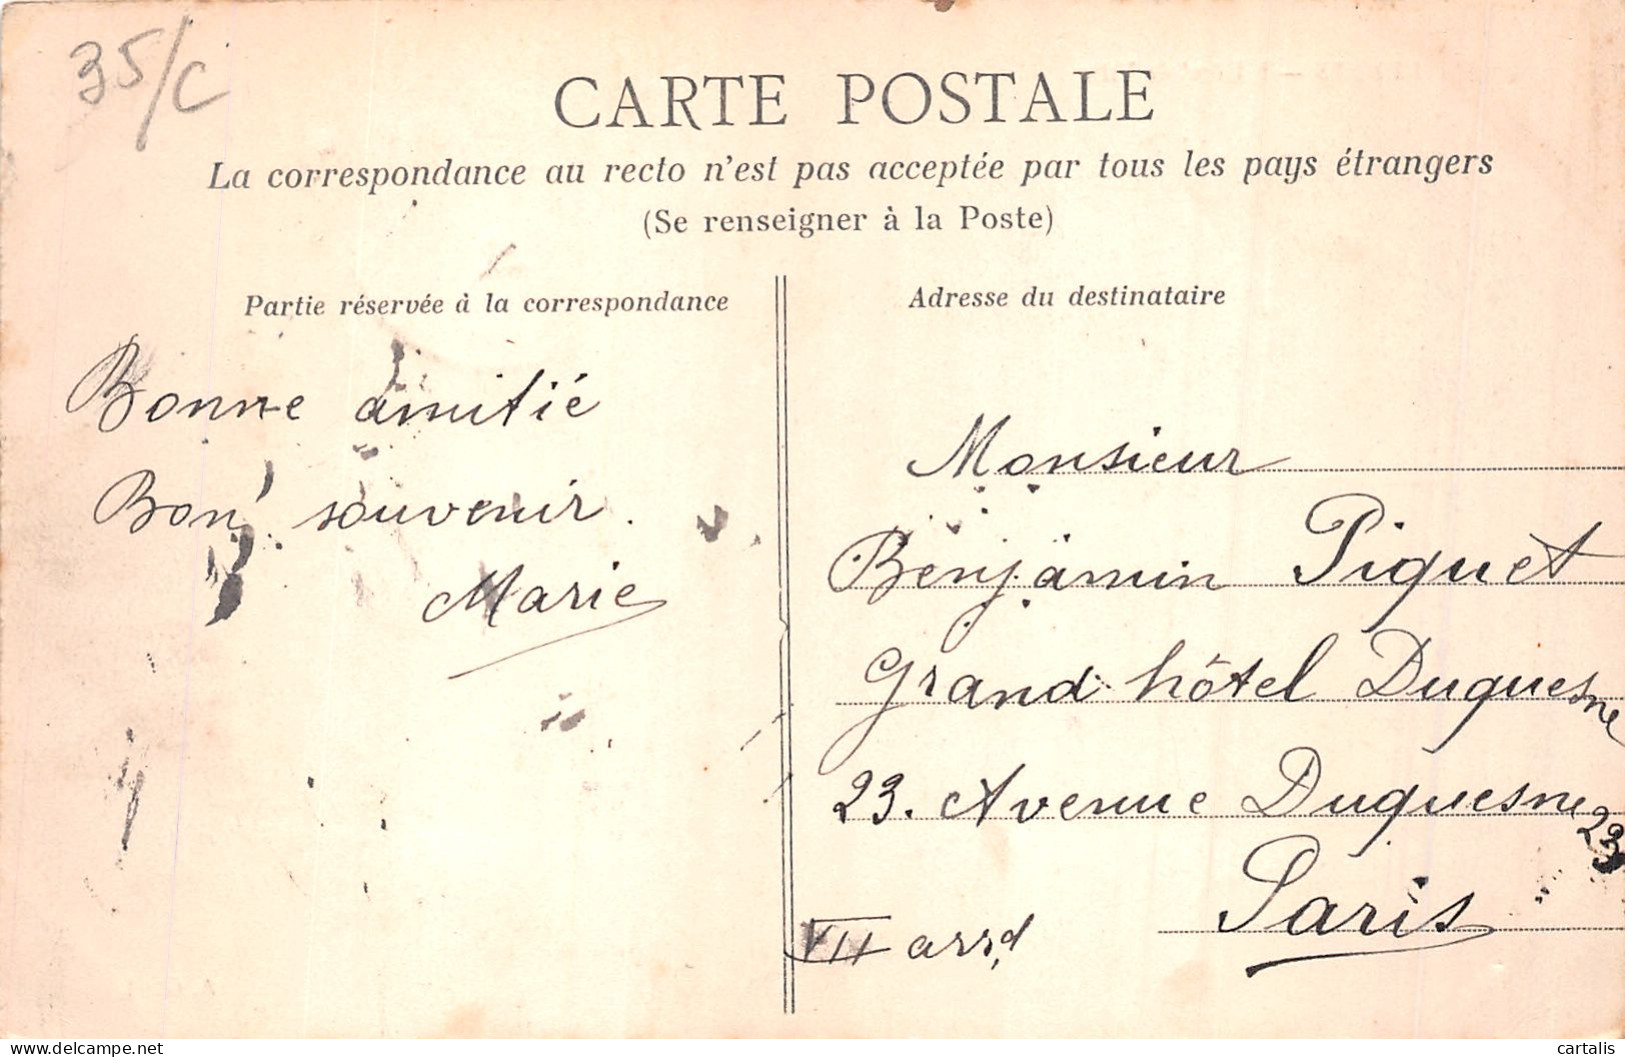 35/C
CARTE POSTALE
La correspondance au recto n'est pas acceptée par tous les pays étrangers
(Se renseigner à la Poste)
Partie réservée à la correspondance
Bonne amitié
Bon souvenir.
Marie
Adresse du destinataire
Monsieur
Benjamin Piquet
Grand hôtel Duquesne
23. Avenue Duquesne 23
Paris
VII arrd
cartalis